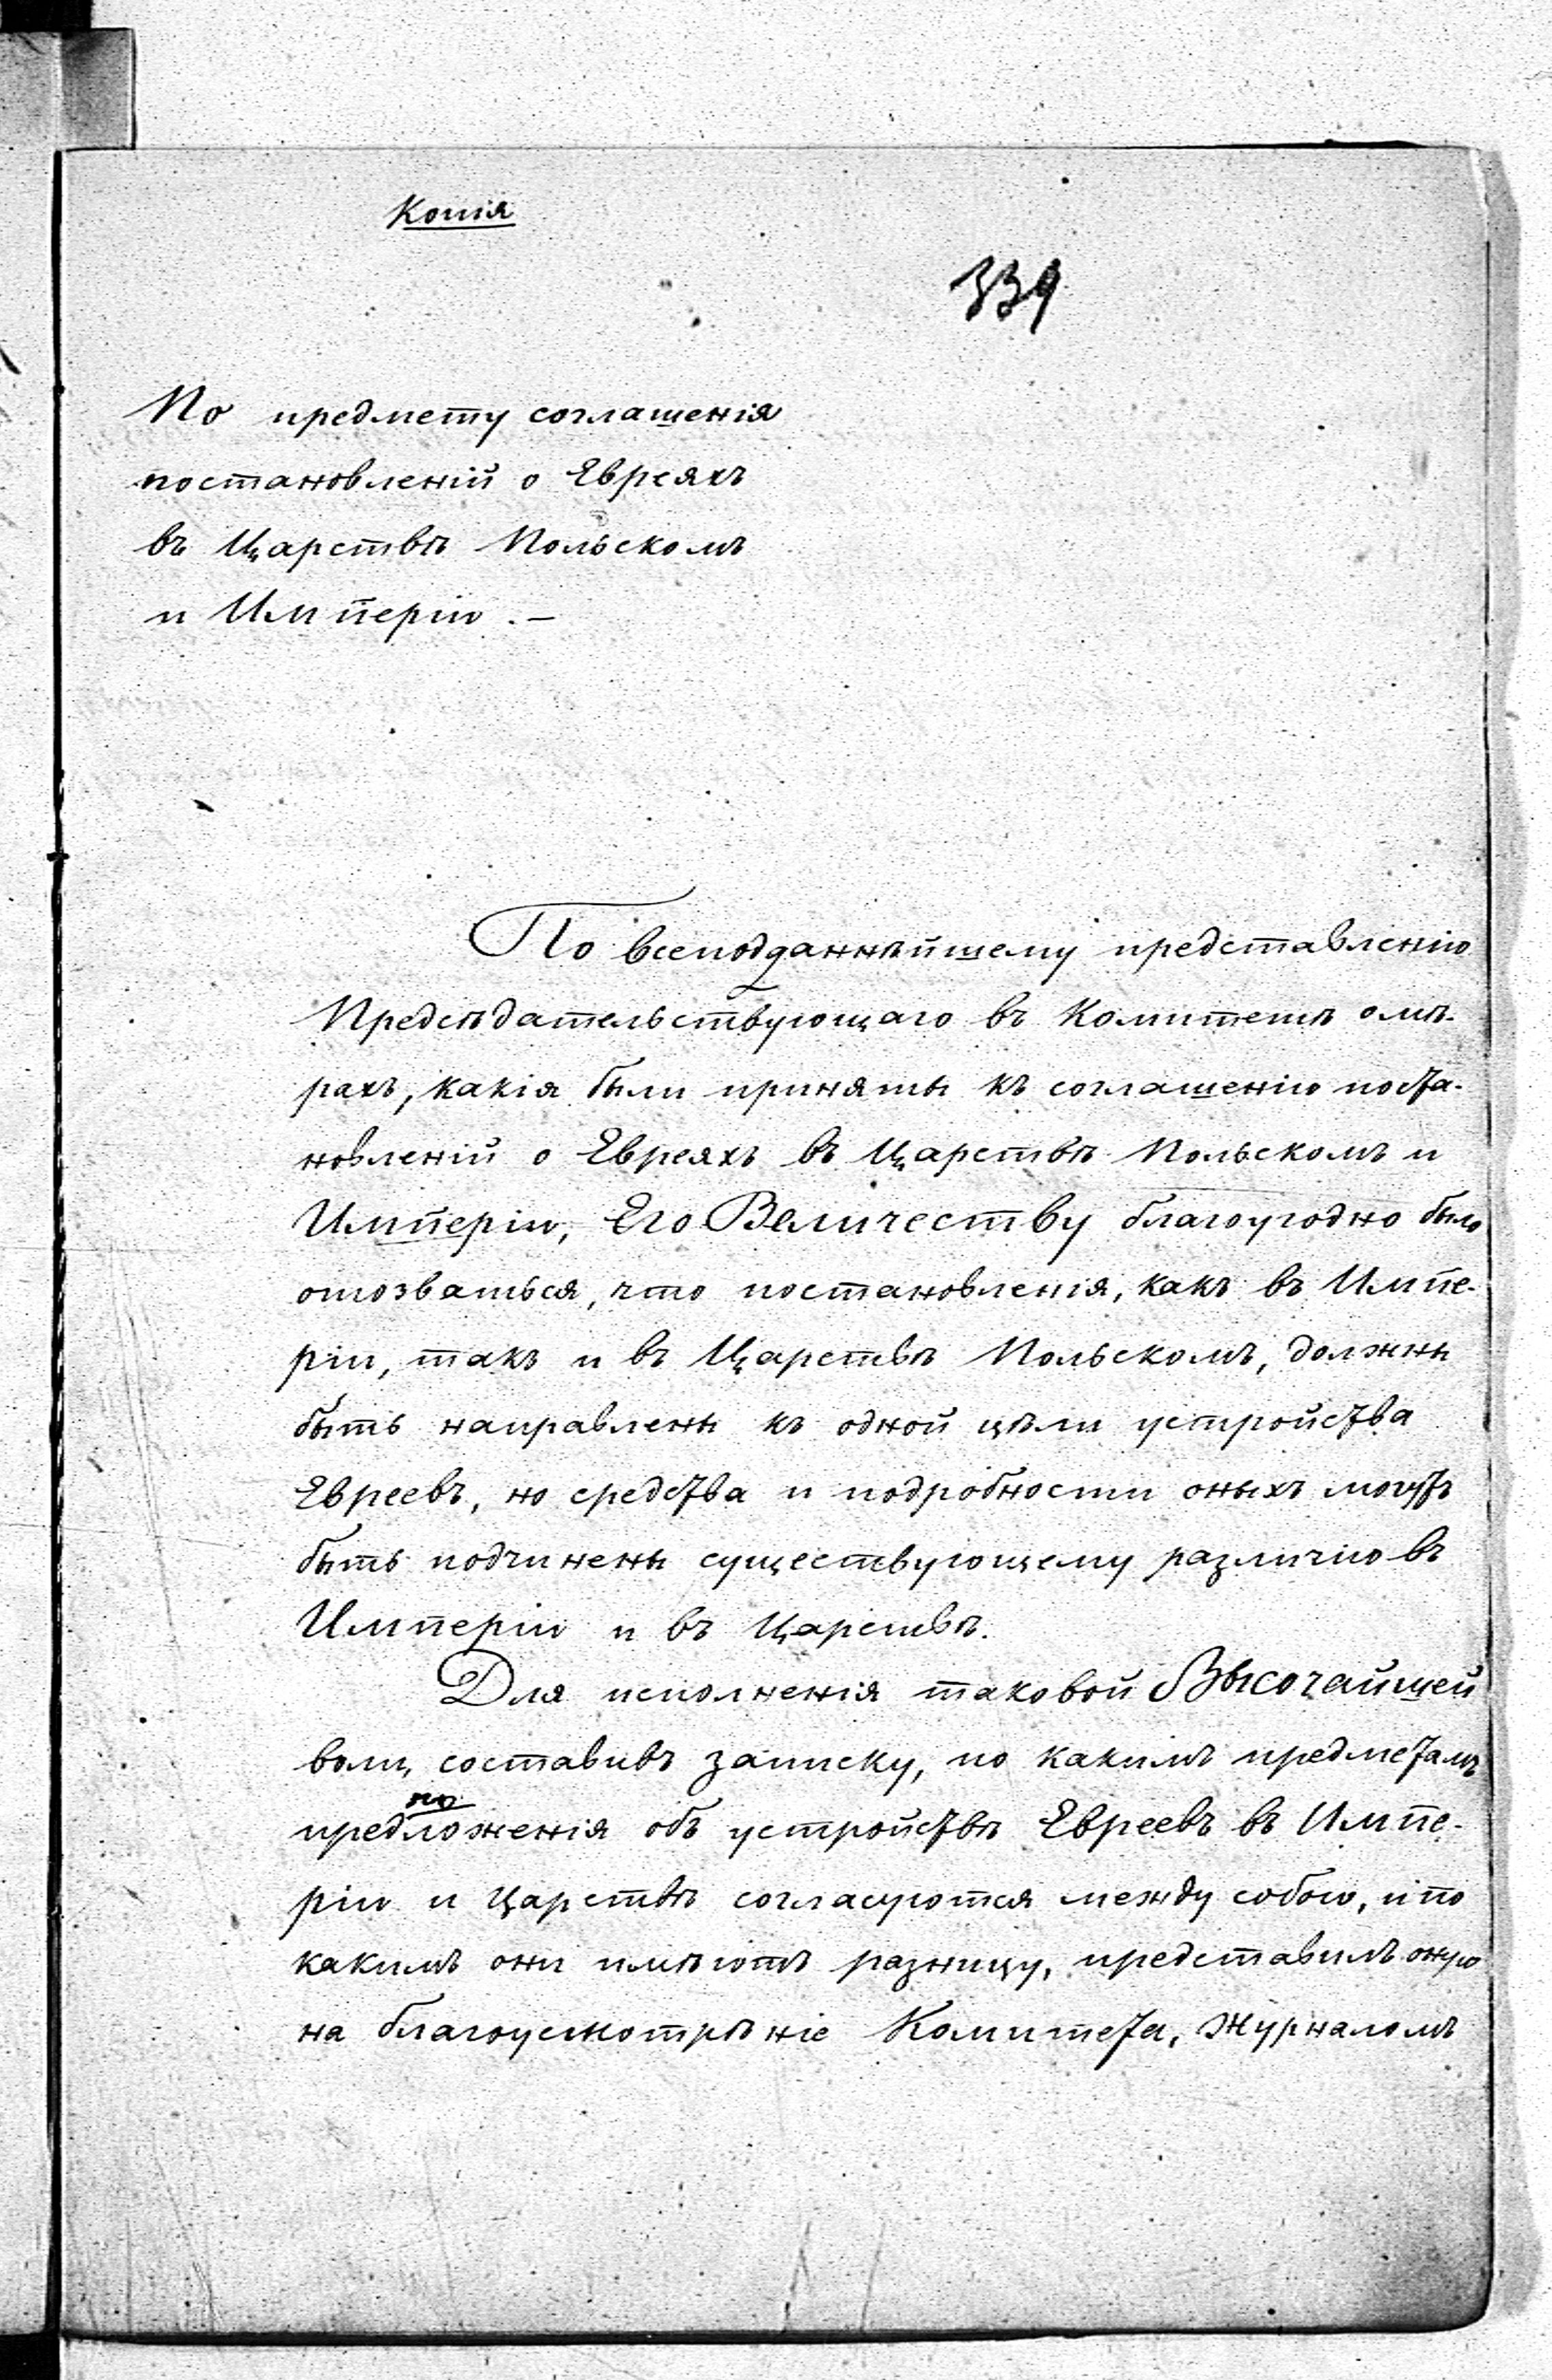 Копія
339
По предмету соглашенія
постановленій о Евреяхъ
въ Царствѣ Польскомъ
и Имперіи.—
По всеподданнѣйшему представленію
Предсѣдательствующаго въ Комитетѣ о мѣ-
рахъ, какія были приняты къ соглашенію поста-
новленій о Евреяхъ въ Царствѣ Польскомъ и
Имперіи, Его Величеству благоугодно было
отозваться, что постановленія, какъ въ Импе-
ріи, такъ и въ Царствѣ Польскомъ, должны
быть направлены къ одной цѣли устройства
Евреевъ, но средства и подробности оныхъ могутъ
быть подчинены существующему различію въ
Имперіи и въ Царствѣ.
Для исполненія таковой Высочайшей
воли, составивъ записку, по какимъ предметамъ
по
предложенія объ устройствѣ Евреевъ въ Импе-
ріи и Царствѣ согласуются между собою, и по
какимъ они имѣютъ разницу, представилъ оную
на благоусмотрѣніе Комитета, Журналомъ